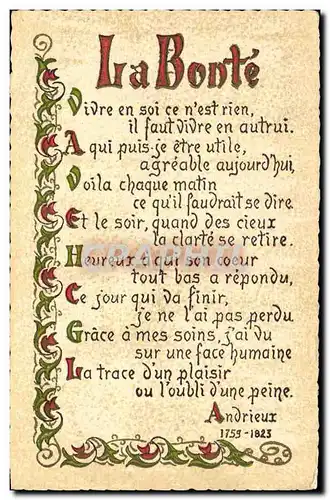 La Bonté
Vivre en soi ce n'est rien,
il faut vivre en autrui.
A qui puis-je être utile,
agréable aujourd'hui,
Voila chaque matin
ce qu'il faudrait se dire.
Et le soir, quand des cieux
la clarté se retire.
Heureux à qui son cœur
tout bas a répondu,
Ce jour qui va finir,
je ne l'ai pas perdu.
Grâce à mes soins, j'ai vu
sur une face humaine
La trace d'un plaisir
ou l'oubli d'une peine.
Andrieux
1759-1823